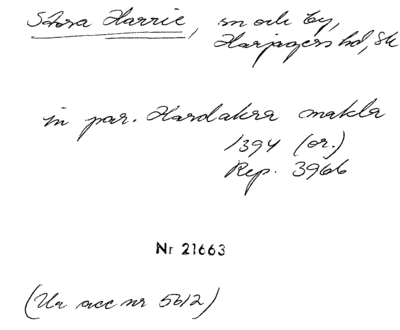 Stora Harrie, sn och by,
Harjagers hd, Sk
in par. Hardakra makla
1394 (or.)
Rep. 3966
Nr 21663
(Ur acc nr 5612)